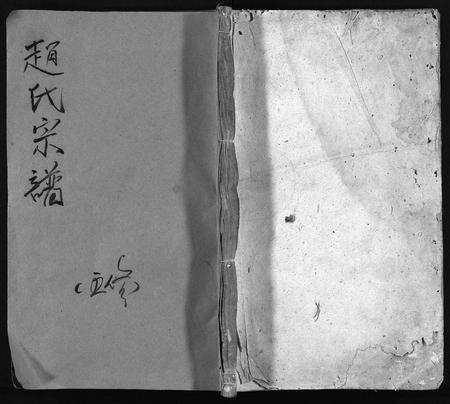 趙氏宗譜
（五修）